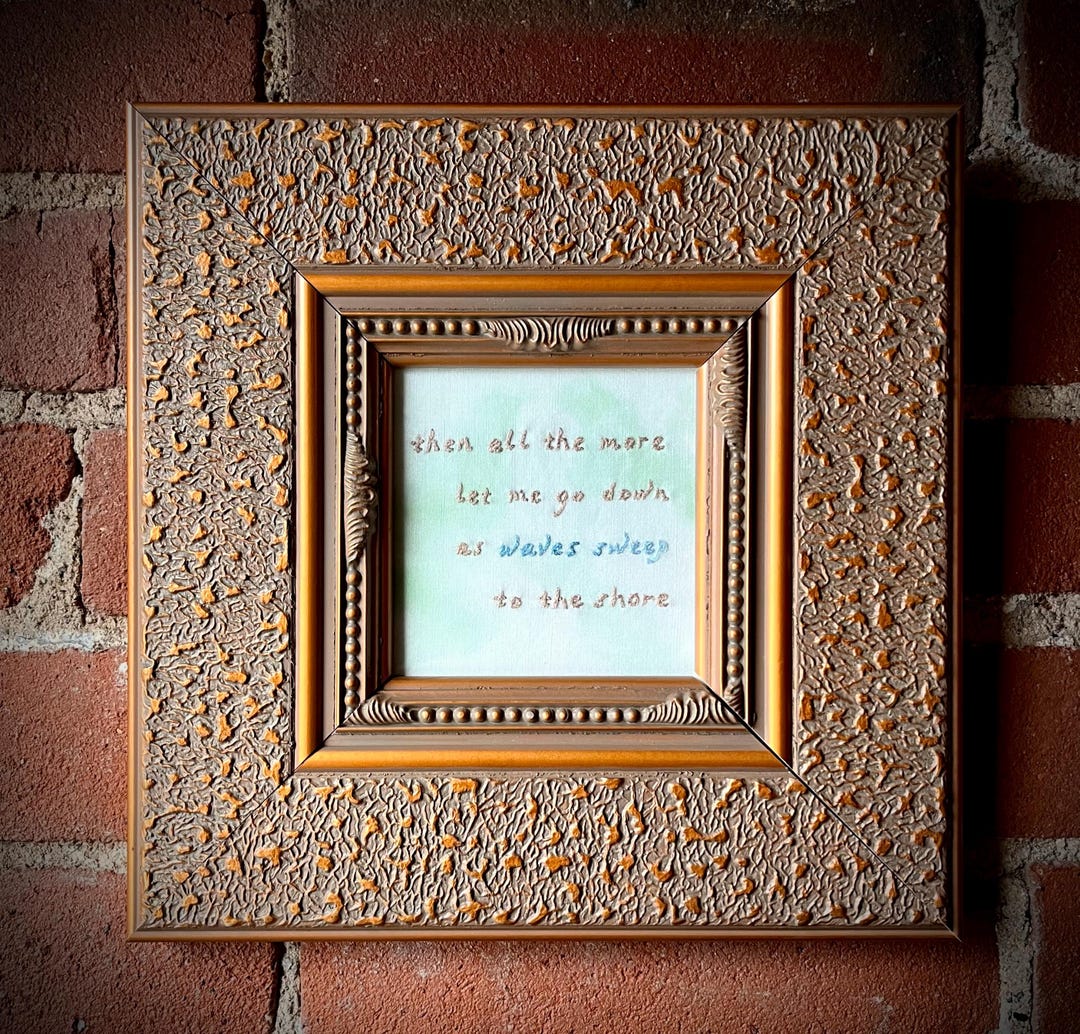 then all the more
let me go down
as waves sweep
to the shore